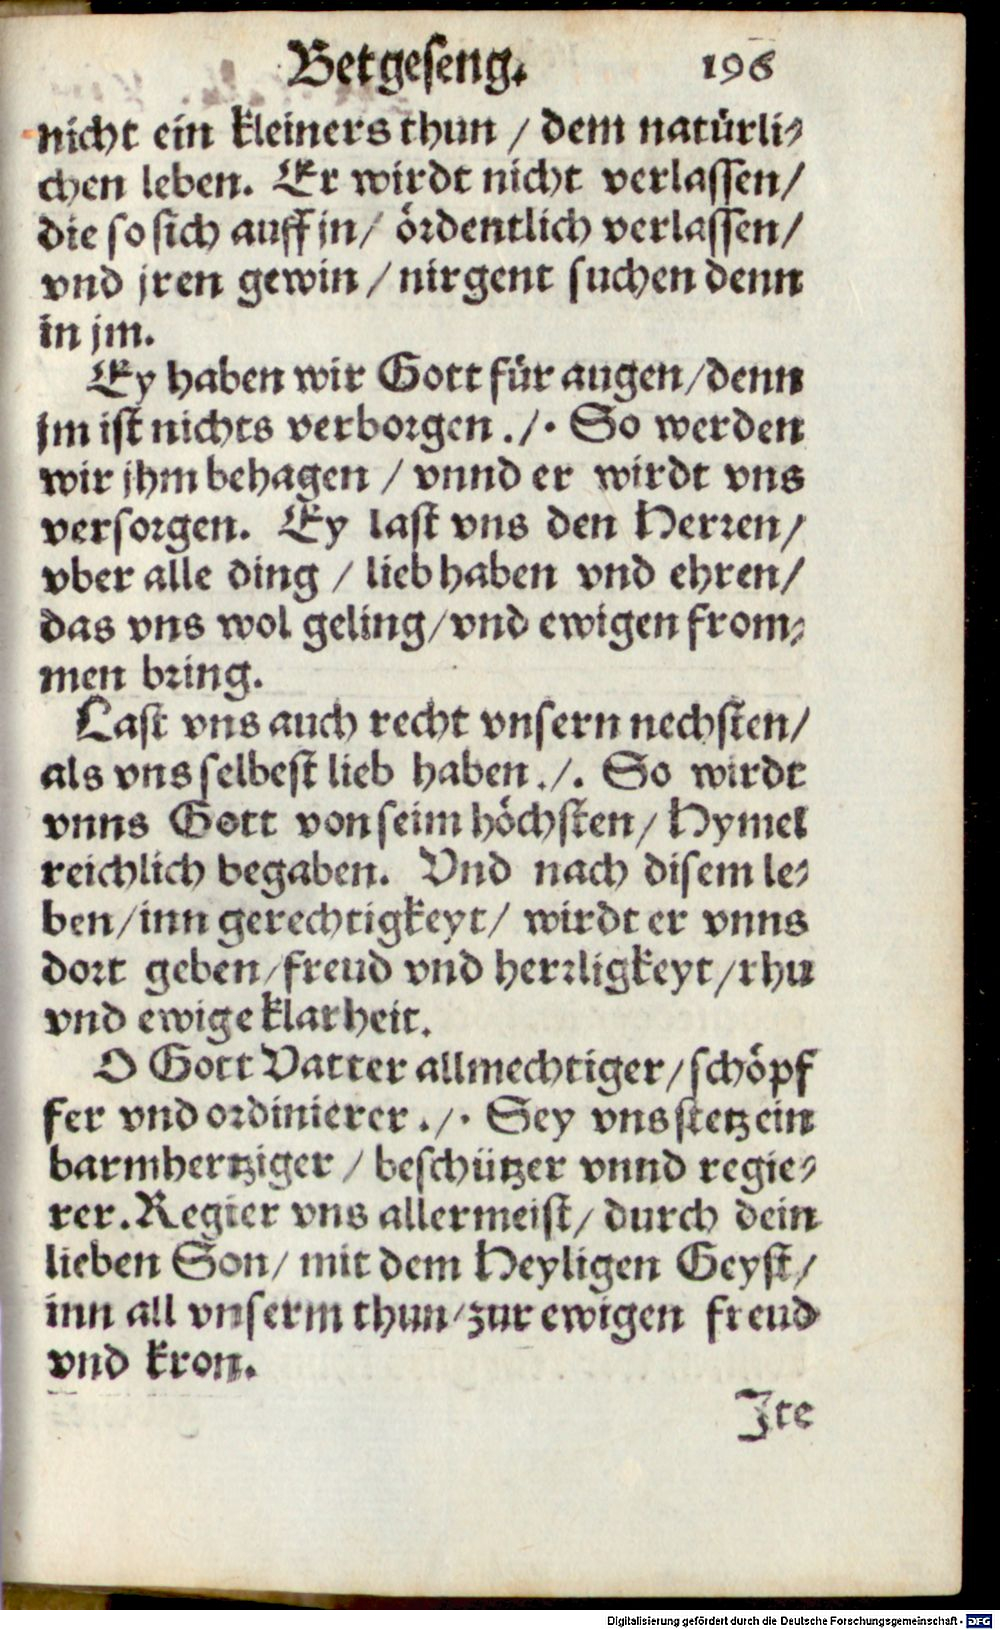 Betgeseng. 196
nicht ein kleiners thun / dem natürli⸗
chen leben. Er wirdt nicht verlassen/
die so sich auff jn/ ördentlich verlassen/
vnd jren gewin / nirgent suchen denn
in jm.
Ey haben wir Gott für augen/denn
jm ist nichts verborgen ./. So werden
wir jhm behagen / vnnd er wirdt vns
versorgen. Ey last vns den Herren/
vber alle ding / lieb haben vnd ehren/
das vns wol geling/vnd ewigen from⸗
men bring.
Last vns auch recht vnsern nechsten/
als vns selbest lieb haben ./. So wirdt
vnns Gott von seim höchsten/ Hymel
reichlich begaben. Vnd nach disem le⸗
ben/inn gerechtigkeyt/ wirdt er vnns
dort geben/freud vnd herrligkeyt/rhu
vnd ewige klarheit.
O Gott Vatter allmechtiger/schöpf
fer vnd ordinierer ./. Sey vns stetz ein
barmhertziger / beschützer vnnd regie⸗
rer. Regier vns allermeist/ durch dein
lieben Son/ mit dem Heyligen Geyst/
inn all vnserm thun/zur ewigen freud
vnd kron.
Jte
Digitalisierung gefördert durch die Deutsche Forschungsgemeinschaft - DFG